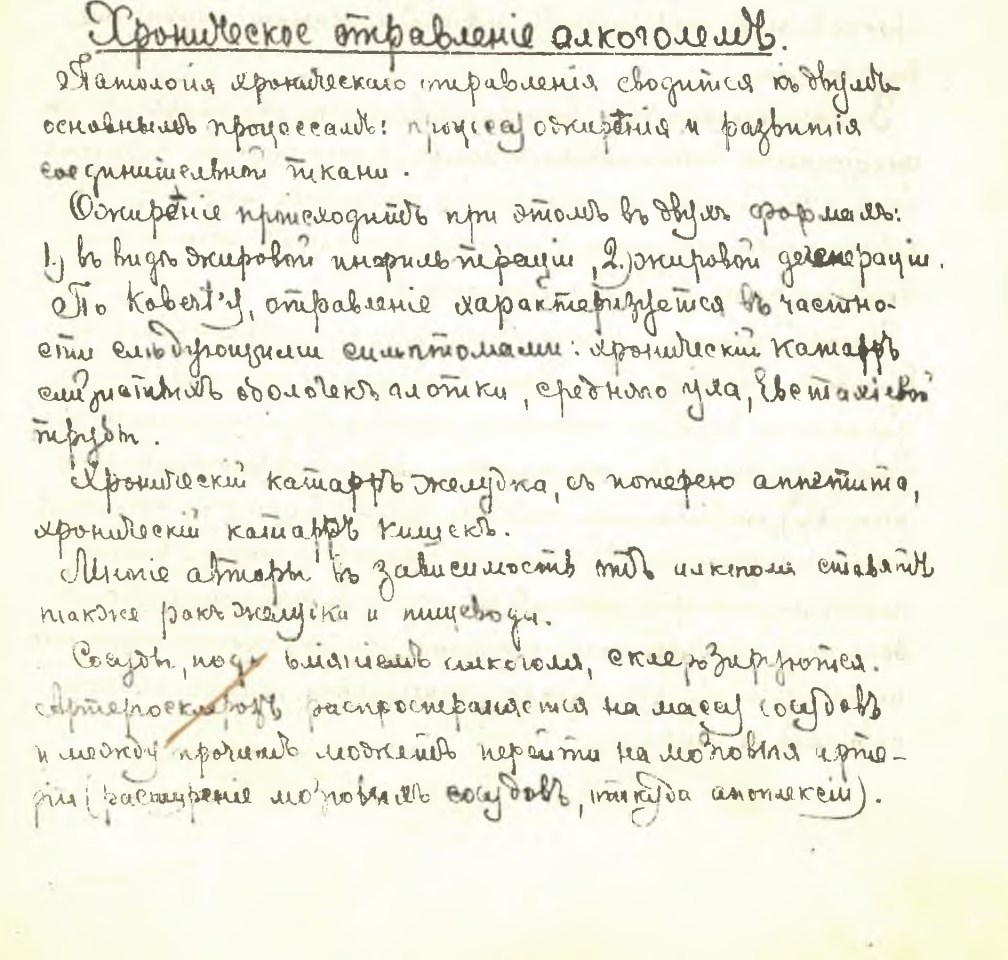 Хроническое отравленіе алкоголемъ.
Патологія хроническаго отравленія сводится къ двумъ
основнымъ процессамъ: процессу ожирѣнія и развитія
соединительной ткани.
Ожирѣніе происходитъ при этомъ въ двухъ формахъ:
1.) въ видѣ жировой инфильтраціи, 2.) жировой дегенераціи.
По Kobert'у, отравленіе характеризуется въ частно-
сти слѣдующими симптомами: хроническій катарръ
слизистыхъ оболочекъ глотки, средняго уха, Евстахіевой
трубы.
Хроническій катарръ желудка, съ потерею аппетита,
хроническій катарръ кишекъ.
Многіе авторы въ зависимость отъ алкоголя ставятъ
также ракъ желудка и пищевода.
Сосуды, подъ вліяніемъ алкоголя, склерозируются.
Артеросклерозъ распространяется на массу сосудовъ
и между прочимъ можетъ перейти на мозговыя арте-
ріи (расширеніе мозговыхъ сосудовъ, откуда апоплексіи).